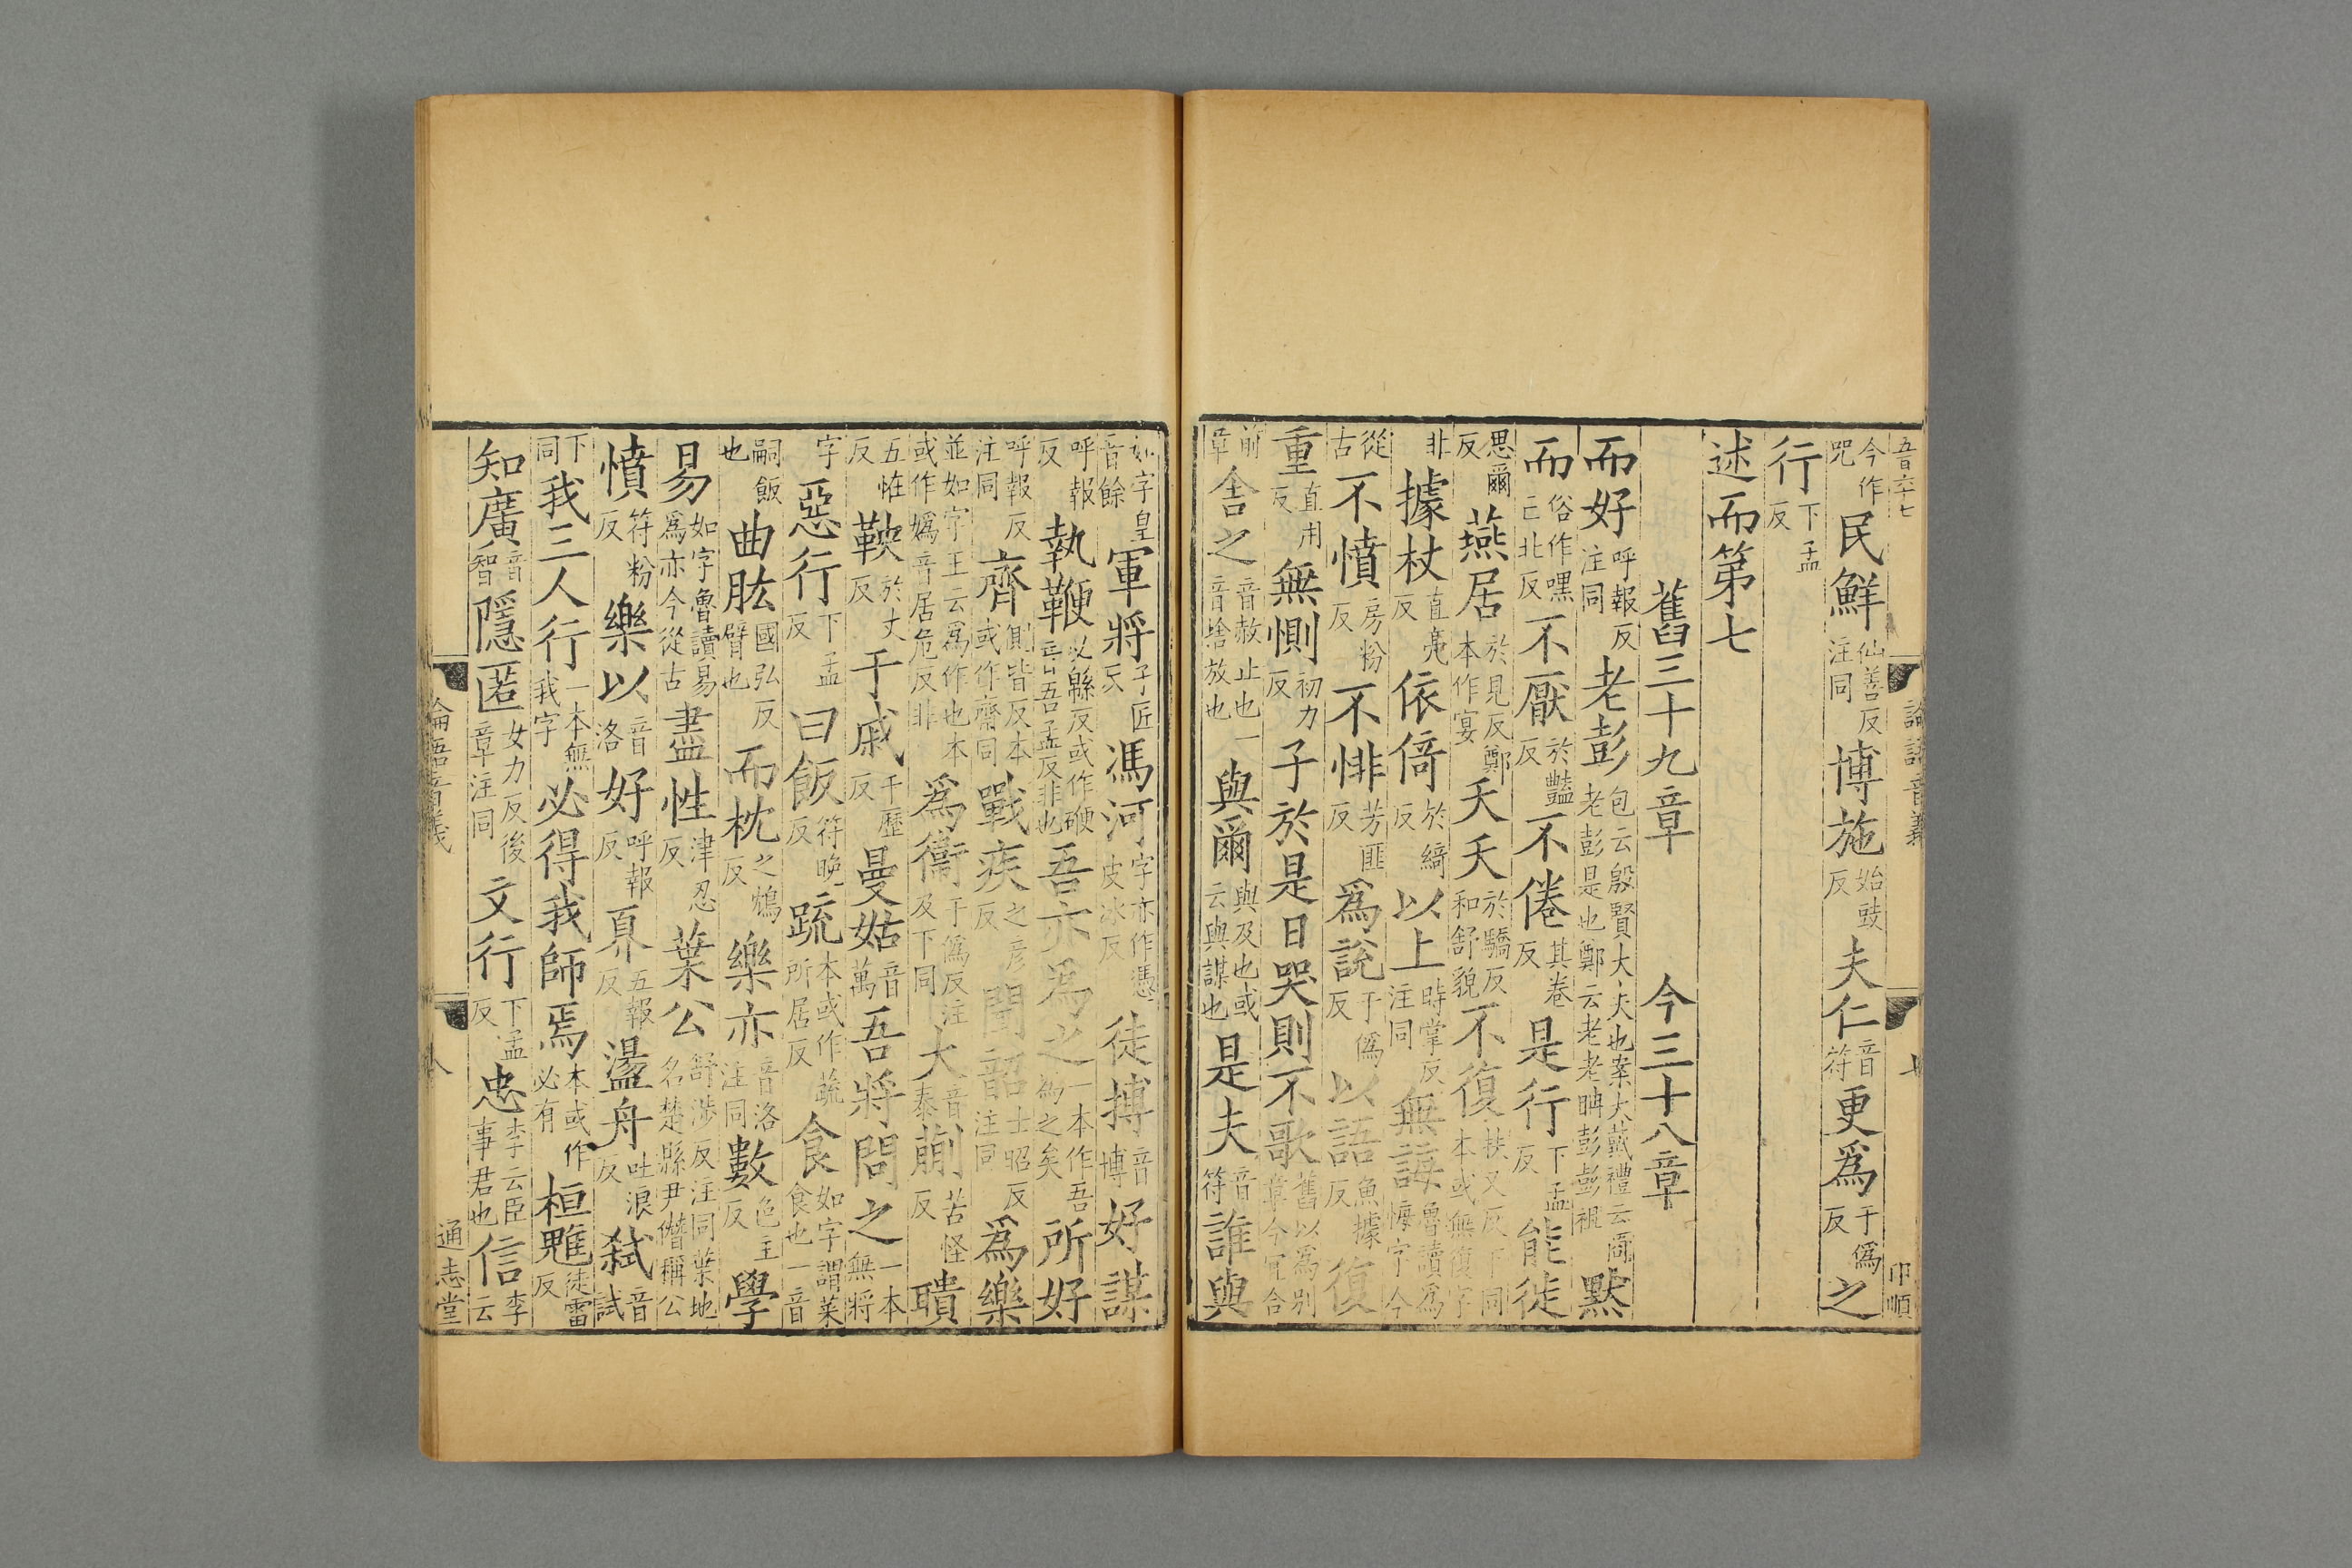 今作呪民鮮仙善反注同博施始豉反夫仁音符更爲于僞反之
行下孟反
述而第七
舊三十九章 今三十八章
而好呼報反注同老彭包云殷賢大夫也案大戴禮云商老彭是也鄭云老老聃彭彭祖默
而俗作嘿亡北反不厭於豔反不倦其卷反是行下孟反能徙
思爾反燕居於見反鄭本作宴夭夭於驕反和舒貌不復扶又反下同本或無復字
非據杖直亮反依倚於綺反以上時掌反注同無誨魯讀爲悔字今
從古不憤房粉反不悱芳匪反爲說于僞反以語魚據反復
重直用反無惻初力反子於是日哭則不歌舊以爲別章今冝合
前章舍之音赦止也一音捨放也與爾與及也或云與謀也是夫音符誰與
如字皇音餘軍將子匠反馮河字亦作憑皮冰反徒搏音博好謀
呼報反執鞭必緜反或作硬音吾孟反非也吾亦爲之一本作吾爲之矣所好
呼報反注同齊側皆反本或作齋同戰疾之彥反聞韶士昭反注同爲樂
並如字王云爲作也本或作嬀音居危反非爲衞于僞反注及下同大音泰蒯苦怪反聵
五怪反鞅於丈反千戚千歷反曼姑音萬吾將問之一本無將
字惡行下孟反曰飯符晚反疏本或作蔬所居反食如字謂菜食也一音
嗣飯也曲肱國弘反臂也而枕之鴆反樂亦音洛注同數色主反學
易如字魯讀易爲亦今從古盡性津忍反葉公舒涉反注同葉地名楚縣尹僭稱公
憤符粉反樂以音洛好呼報反奡五報反盪舟吐浪反弑音試
下同我三人行一本無我字必得我師焉本或作必有桓魋徒雷反
知廣音智隱匿女力反後章注同文行下孟反忠李云臣事君也信李云
論語音義 八 通志堂